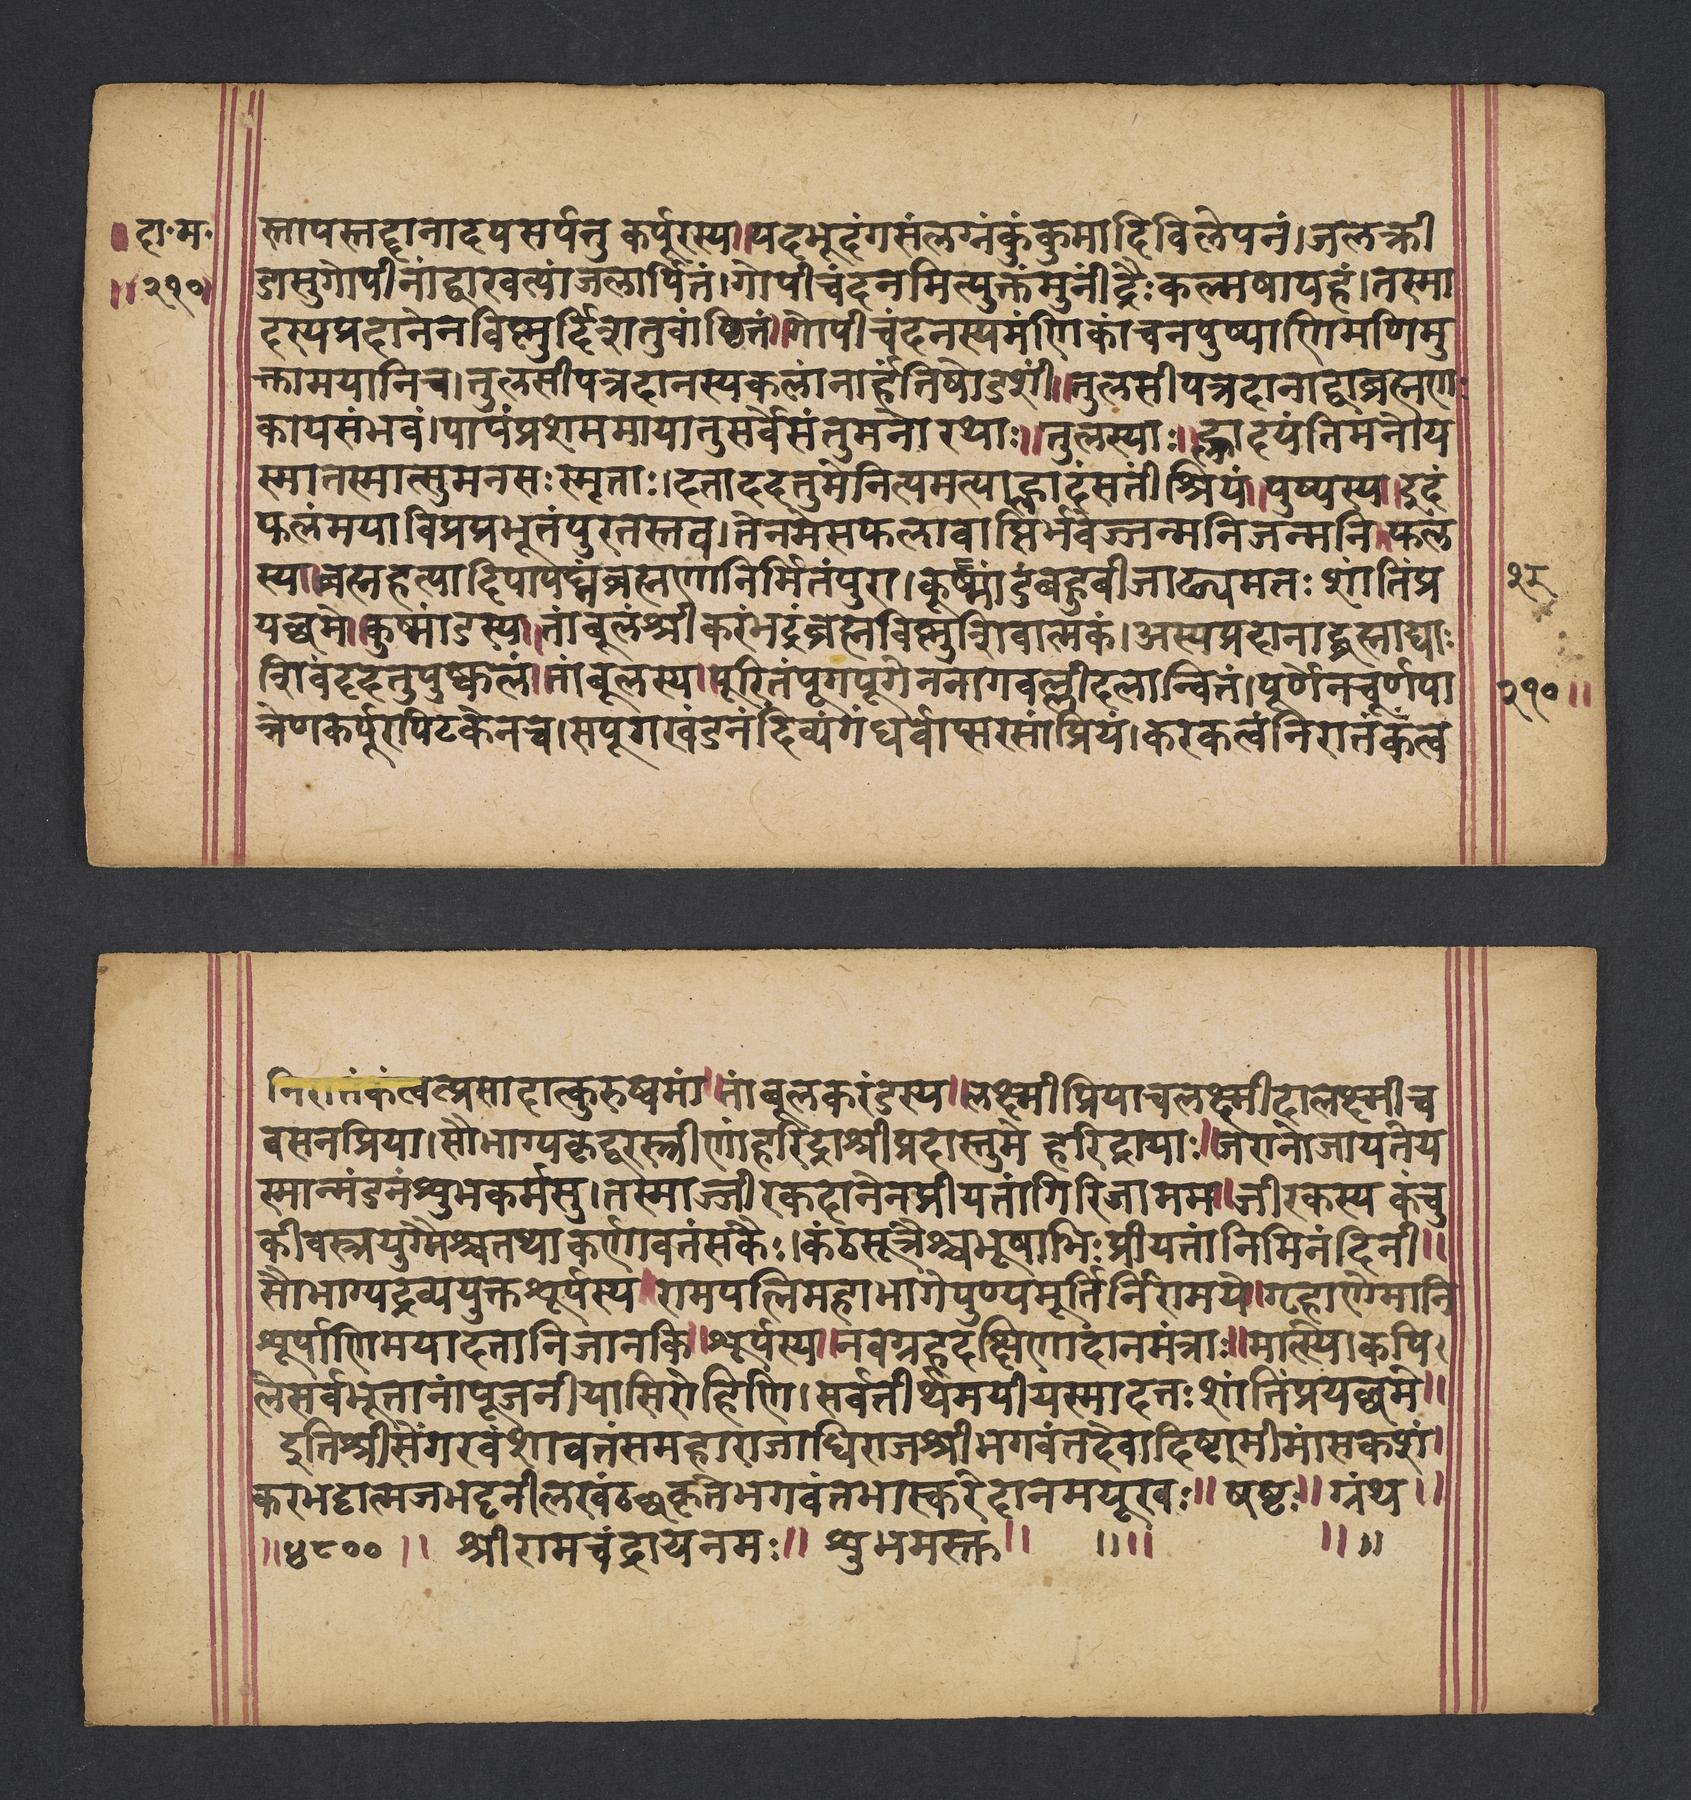 दा॰म॰
॥२१०
स्तापस्तद्दानादपसर्पतु कर्पूरस्य॥यदभूदंगसंलग्नंकुंकुमादिविलेपनं।जलक्री
डासुगोपीनांद्वारवत्यांजलार्पितं।गोपीचंदनमित्युक्तंमुनींद्रैःकल्मषापहं।तस्मा
दस्यप्रदानेनविष्णुर्दिशतुवांछितं॥गोपीचंदनस्यमंणिकांचनपुष्पाणिमणिमु
क्तामयानिच।तुलसीपत्रदानस्यकलांनार्हंतिषोडशीं॥तुलसीपत्रदानाद्वाब्रह्मणः
कायसंभवं।पापंप्रशममायातुसर्वेसंतुमनोरथाः॥तुलस्याः॥ह्लादयंतिमनोय
स्मात्तस्मात्सुमनसःस्मृताः।दत्ताददतुमेनित्यमत्याह्लादंसतींश्रियं॥पुष्पस्य॥इदं
फलंमयाविप्रप्रभूतंपुरतस्तव।तेनमेसफलावाप्तिर्भवेज्जन्मनिजन्मनि॥फल
स्य॥ब्रह्महत्यादिपापघ्नंब्रह्मणानिर्मितंपुरा।कूष्मांडंबहुबीजाढ्यमतःशांतिंप्र
यछमे॥कुष्मांडस्य॥तांबूलंश्रीकरंभद्रंब्रह्मविष्णुशिवात्मकं।अस्यप्रदानाद्ब्रह्माद्याः
शिवंददतुपुष्कलं॥तांबूलस्य॥पूरितंपूगपूगेननागवल्लीदलान्वितं।पूर्णेनचूर्णपा
त्रेणकर्पूरपिटकेनच।सपूगखंडनंदिव्यंगंधर्वाप्सरसांप्रियं।करकत्वंनिरातंकंत्व
२१०॥
निरातंकंत्वत्प्रसादात्कुरुष्वमां॥तांबूलकरंडस्य॥लक्ष्मीप्रियाचलक्ष्मीदालक्ष्मीच
वसनप्रिया।सौभाग्यकृद्वरस्त्रीणांहरिद्राश्रीप्रदास्तुमे हरिद्रायाः॥जरानोजायतेय
स्मान्मंडनंशुभकर्मसु।तस्माज्जीरकदानेनप्रीयतांगिरिजामम॥जीरकस्य कंचु
कीवस्त्रयुग्मैश्चतथाकर्णावतंसकैः।कंठसूत्रैश्चभूषाभिःप्रीयतांनिमिनंदिनी॥
सौभाग्यद्रव्ययुक्तशूर्पस्य॥रामपत्निमहाभागेपुण्यमूर्तिर्निरामये॥गृहाणेमानि
शूर्पाणिमयादत्तानिजानकि॥शूर्पस्य॥नवग्रहदक्षिणादानमंत्राः॥मात्स्ये।कपि
लेसर्वभूतानांपूजनीयासिरोहिणि।सर्वतीर्थमयीयस्मादतःशांतिंप्रयछमे॥
इतिश्रीसेंगरवंशावतंसमहाराजाधिराजश्रीभगवंतदेवादिष्टामीमांसकशं
करभट्टात्मजभट्टनीलखंठछकृतेभगवंतभास्करेदानमयूखः॥षष्टः॥ग्रंथ॥
॥५८००॥ श्रीरामचंद्रायनमः॥ शुभमस्तु॥ ॥॥ ॥॥